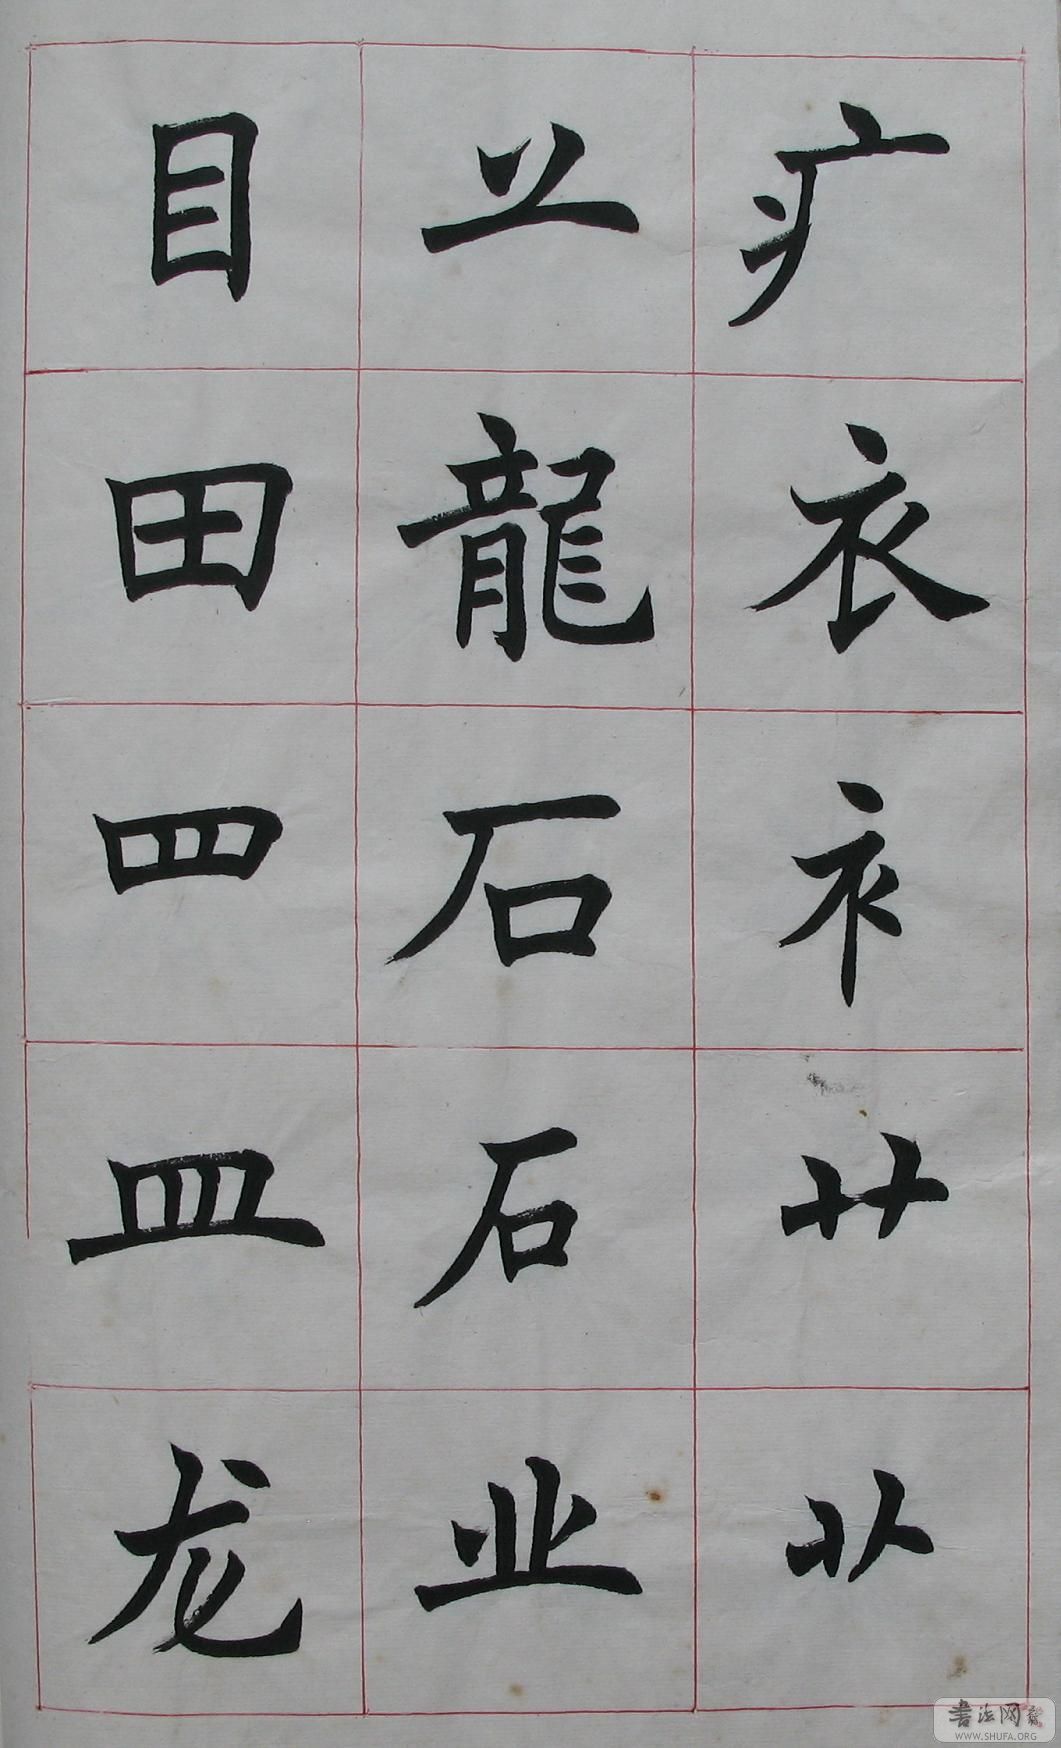 疒衣衤艹
龍石石业
目田四皿龙
書法网
WWW.SHUFA.ORG